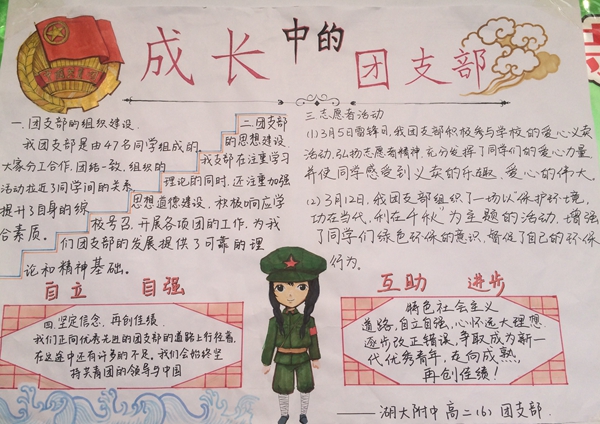 成长中的团支部
一.团支部的组织建设.
我团支部是由47名同学组成的.
大家分工合作,团结一致.组织的
活动拉近了同学间的关系.
提升了自身的综
合素质.
二.团支部
的思想建设.
我支部在注重学习
理论的同时,还注重加强
思想道德建设,积极响应学
校号召,开展各项团的工作,为我
们团支部的发展提供了可靠的理
论和精神基础。
三.志愿者活动
(1)3月5日雷锋日,我团支部积极参与学校的爱心义卖
活动,弘扬志愿者精神,充分发挥了同学们的爱心力量,
并使同学感受到义卖的乐趣,爱心的伟大.
(2)3月12日,我团支部组织了一切以"保护环境,
功在当代,利在千秋"为主题的活动,增强
了同学们绿色环保的意识,督促了自己的环保
行为。
自立 自强
四.坚定信念,再创佳绩.
我们正向优秀先进的团支部的道路上行径着,
在这途中还有许多的不足,我们会始终坚
持共青团的领导与中国
互助 进步
特色社会主义
道路,自立自强,心怀远大理想
逐步改正错误,争取成为新一
代优秀青年,走向成熟,
再创佳绩!
——湖大附中高二(6)团支部.